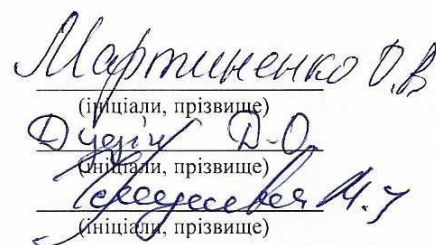 Мартиненко О.В
(ініціали, прізвище)
Д-О
(ініціали, прізвище)
(ініціали, прізвище)